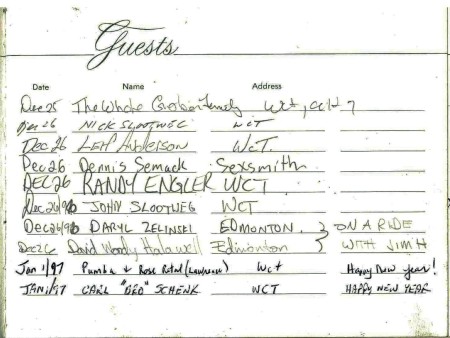 Guests
Date Name Address
Dec 25 The Whole Family Wct,
Dec 26 NICK SLOOTWEG WCT
Dec. 26 LEIF Anderson WCT.
Dec 26 Dennis Semack Sexsmith
DEC 26 RANDY ENGLER WCT
Dec 26/96 JOHN SLOOTWEG WCT
Dec 26/96 DARYL ZELINSKI EDMONTON. } ON A RIDE
Dec 26 David Woody Edmonton } WITH JIM H
Jan 1/97 Pumba & Rose Wct Happy New year!
JAN 1/97 CARL "BED" SCHENK WCT HAPPY NEW YEAR